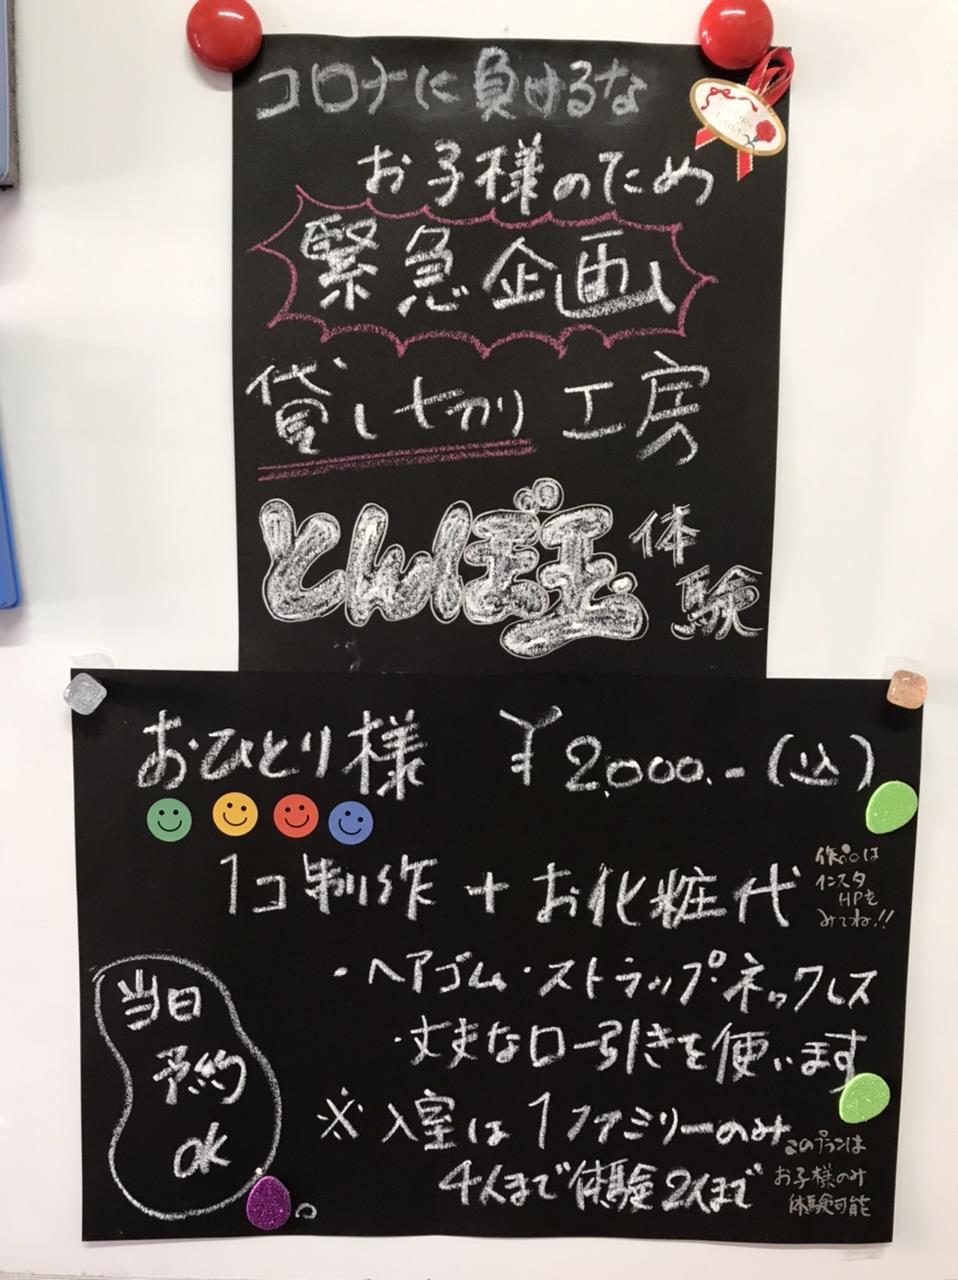 コロナに負けるな
お子様のため
緊急企画
貸し切り工房
とんぼ玉体験
おひとり様 ¥2,000.-(込)
1コ制作+お化粧代
作品は
インスタ
HPを
みてね!!
・ヘアゴム・ストラップネックレス
・丈夫なロー引きを使います
当日
予約
OK
※入室は1ファミリーのみ
4人まで体験2人まで
このプランは
お子様のみ
体験可能